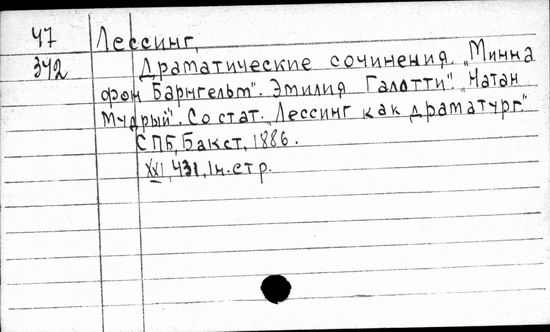 47 Лессинг,
342 Драматические сочинения. „Минна
фон Барнгельм". „Эмилия Галотти". „Натан
Мудрый". Со стат. „Лессинг как драматург."
СПБ, Бакст, 1886.
XXI, 431, 1н. стр.